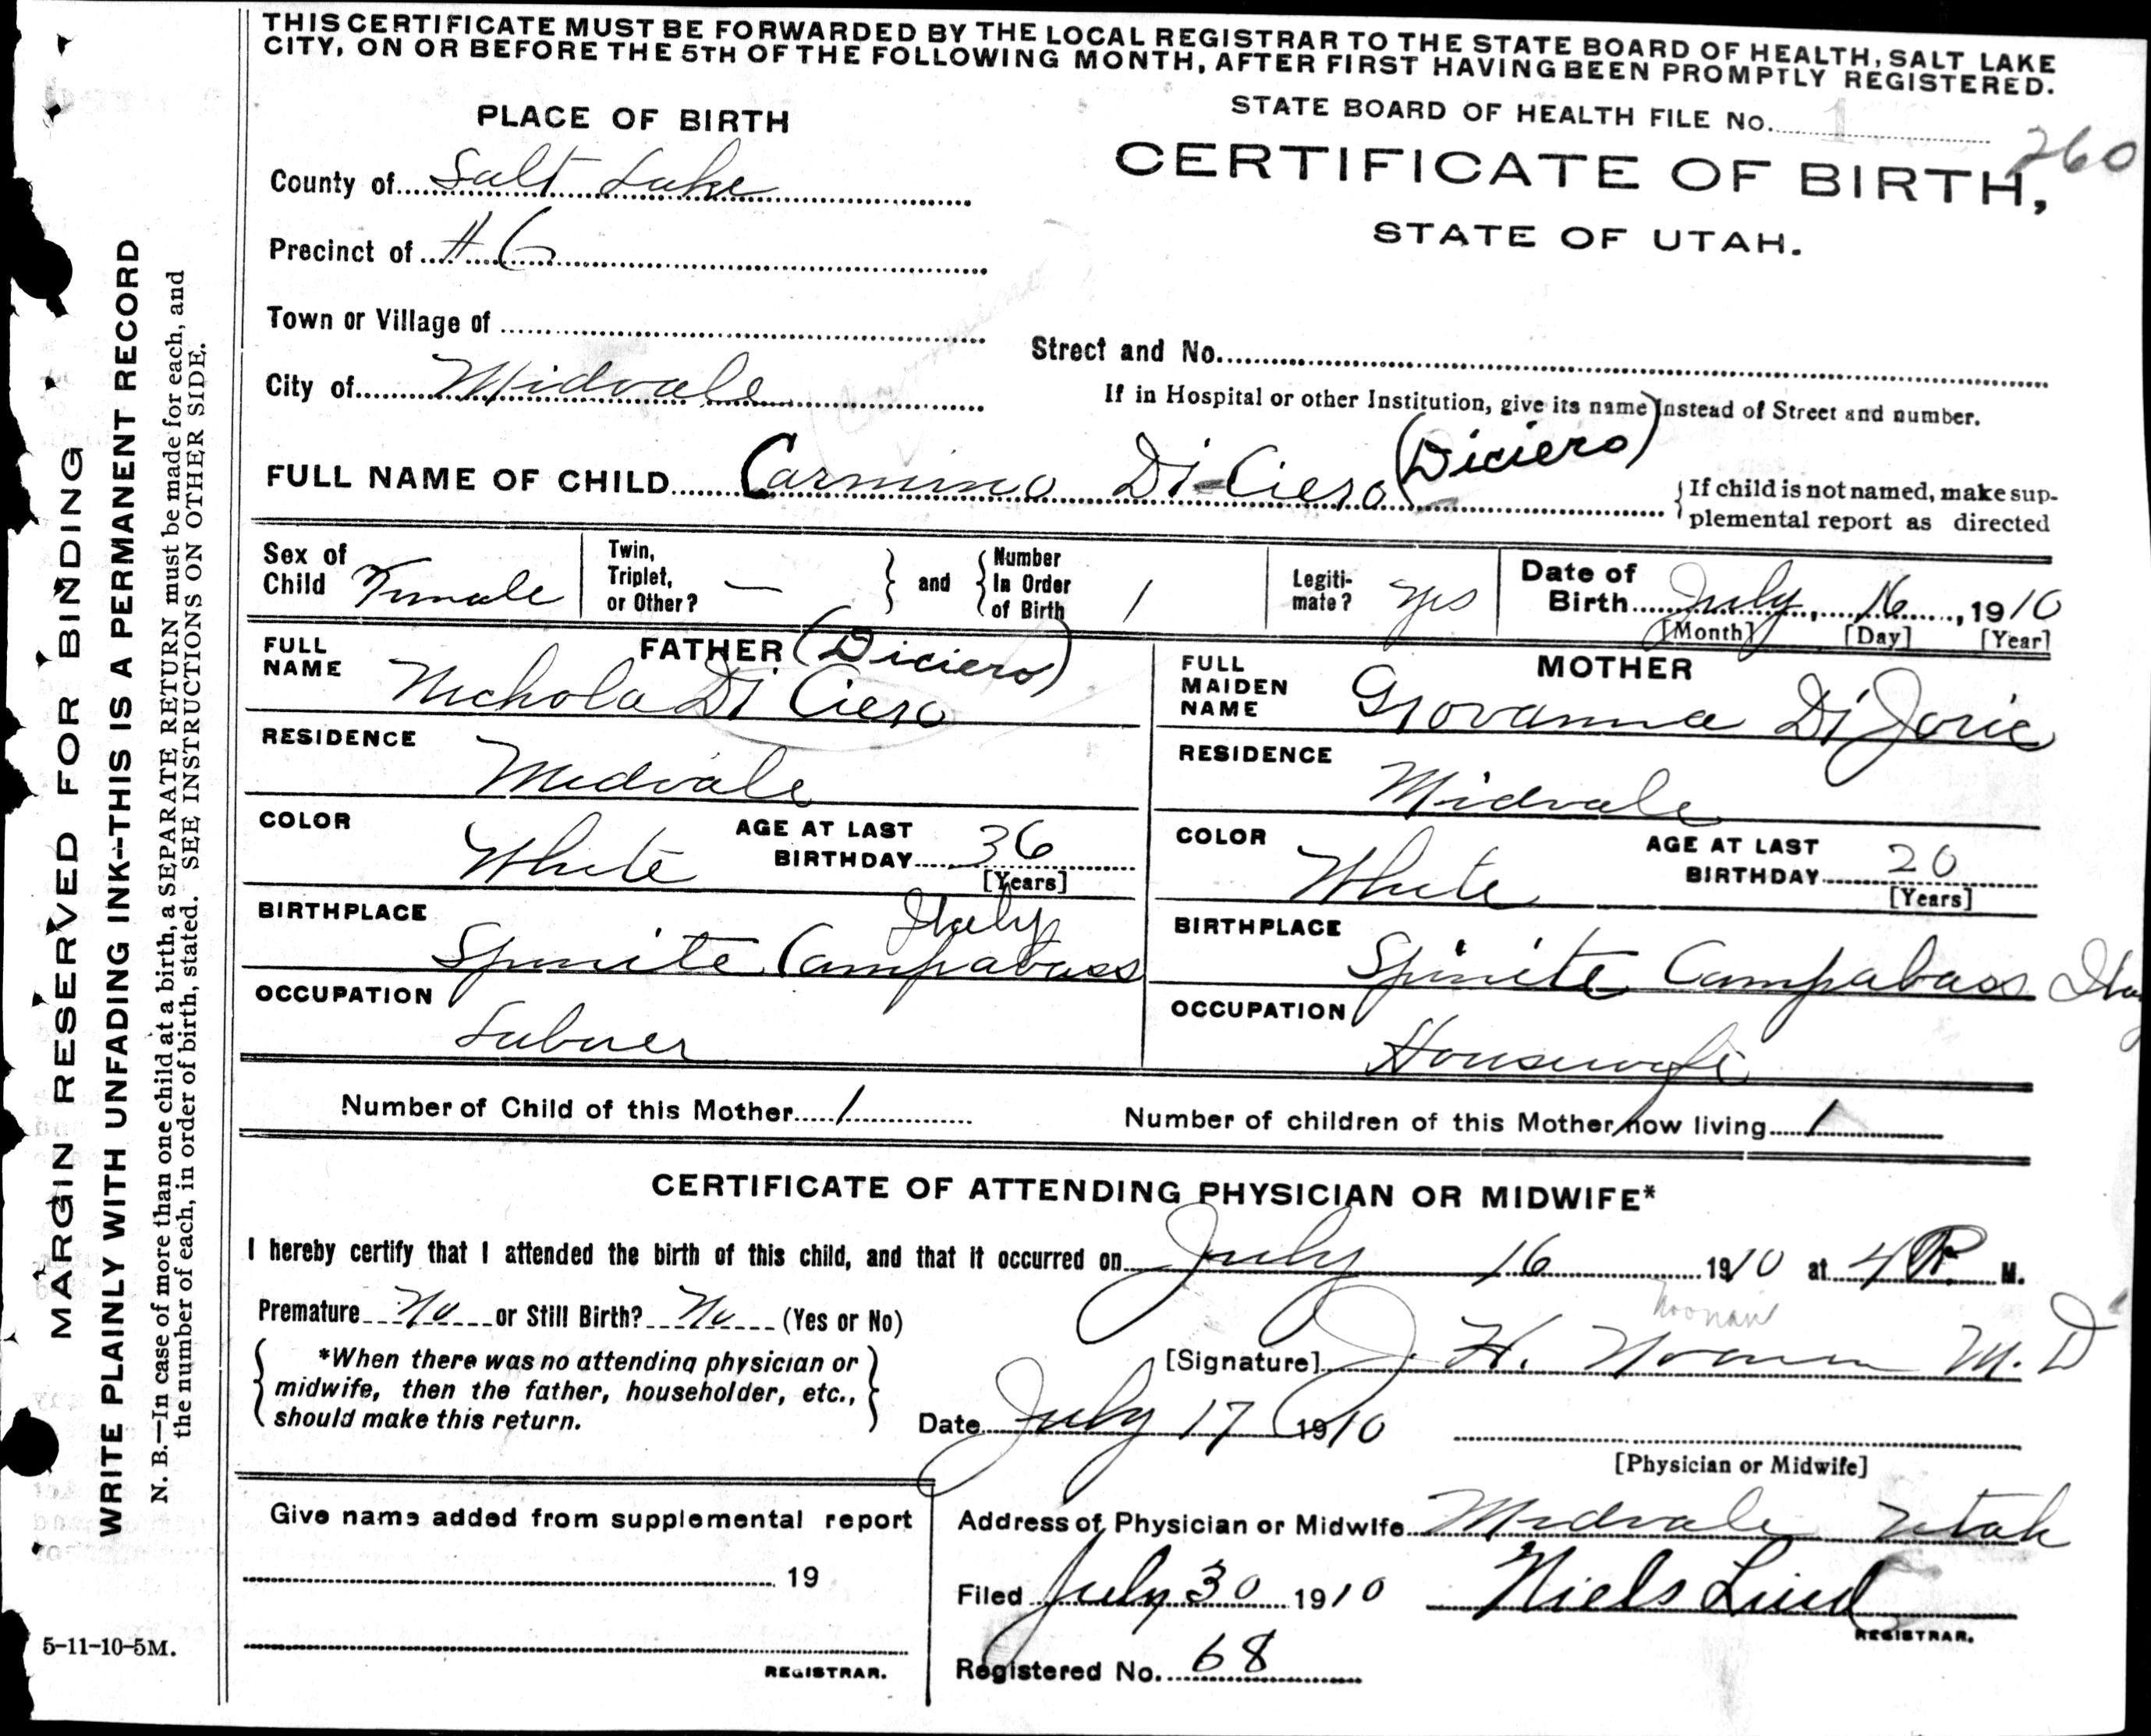 THIS CERTIFICATE MUST BE FORWARDED BY THE LOCAL REGISTRAR TO THE STATE BOARD OF HEALTH, SALT LAKE
CITY, ON OR BEFORE THE 5TH OF THE FOLLOWING MONTH, AFTER FIRST HAVING BEEN PROMPTLY REGISTERED.
PLACE OF BIRTH
STATE BOARD OF HEALTH FILE No. 1
260
County of Salt Lake
CERTIFICATE OF BIRTH,
Precinct of #6
STATE OF UTAH.
Town or Village of
Street and No.
City of Midvale
If in Hospital or other Institution, give its name instead of Street and number.
(Diciero)
FULL NAME OF CHILD Carmino Di Ciero
If child is not named, make sup-
plemental report as directed
Sex of Child Female
Twin, Triplet, or Other? —
and
Number In Order of Birth 1
Legiti- mate? yes
Date of Birth July, 16, 1910
[Month] [Day] [Year]
FATHER (Diciero)
FULL NAME Nichola Di Ciero
MOTHER
FULL MAIDEN NAME Giovanna Di Jorie
RESIDENCE Midvale
RESIDENCE Midvale
COLOR White AGE AT LAST BIRTHDAY 36 [Years]
COLOR White AGE AT LAST BIRTHDAY 20 [Years]
BIRTHPLACE Spinite Campabass Italy
BIRTHPLACE Spinite Campabass Ita
OCCUPATION Labuer
OCCUPATION Housewife
Number of Child of this Mother 1
Number of children of this Mother now living 1
CERTIFICATE OF ATTENDING PHYSICIAN OR MIDWIFE*
I hereby certify that I attended the birth of this child, and that it occurred on July 16 1910 at 4 P. M.
Premature No or Still Birth? No (Yes or No)
noonan
[Signature] J. H. Noonan M. D
*When there was no attending physician or
midwife, then the father, householder, etc.,
should make this return.
Date July 17 1910
[Physician or Midwife]
Give name added from supplemental report
19
REGISTRAR.
Address of Physician or Midwife Midvale Utah
Filed July 30 1910 Niels Lind
REGISTRAR.
Registered No. 68
MARGIN RESERVED FOR BINDING
WRITE PLAINLY WITH UNFADING INK--THIS IS A PERMANENT RECORD
N. B.—In case of more than one child at a birth, a SEPARATE RETURN must be made for each, and
the number of each, in order of birth, stated. SEE INSTRUCTIONS ON OTHER SIDE.
5-11-10-5M.